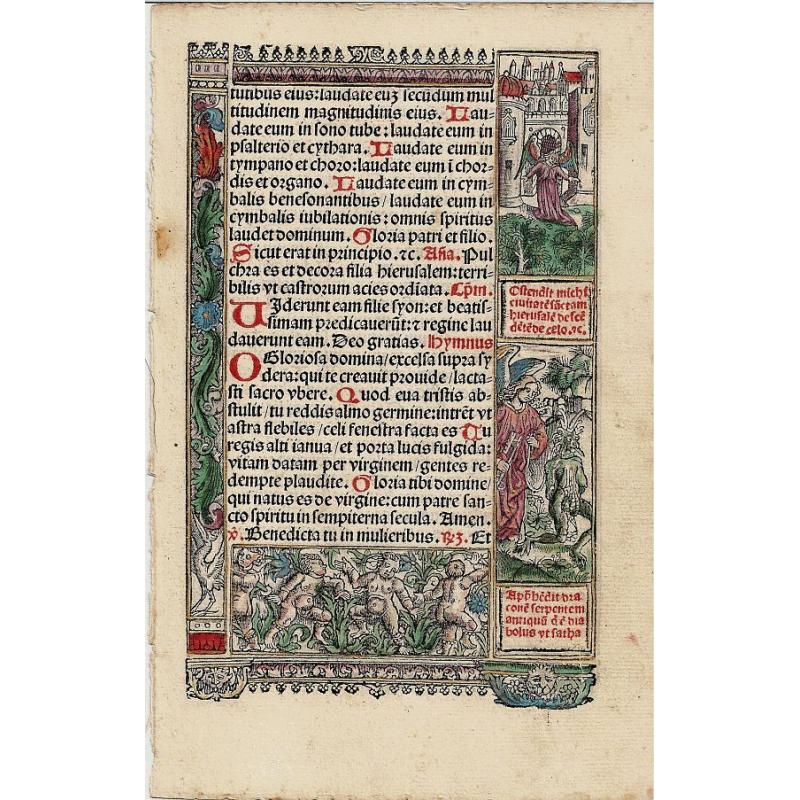 tutibus eius: laudate euz secūdum mul
titudinem magnitudinis eius. Lau-
date eum in sono tube: laudate eum in
psalterio et cythara. Laudate eum in
tympano et choro: laudate eum ī chor-
dis et organo. Laudate eum in cym-
balis benesonantibus / laudate eum in
cymbalis iubilationis: omnis spiritus
laudet dominum. Gloria patri et filio.
Sicut erat in principio. ⁊c. Aña. Pul
chra es et decora filia hierusalem: terri-
bilis vt castrorum acies ordīata. Cpĩm.
UIderunt eam filie syon: et beatis-
simam predicauerūt: ⁊ regine lau
dauerunt eam. Deo gratias. Hymnus
O Gloriosa domina / excelsa supra sy
dera: qui te creauit prouide / lacta-
sti sacro vbere. Quod eua tristis ab-
stulit / tu reddis almo germine: intrēt vt
astra flebiles / celi fenestra facta es Tu
regis alti ianua / et porta lucis fulgida:
vitam datam per virginem / gentes re-
dempte plaudite. Gloria tibi domine /
qui natus es de virgine: cum patre san-
cto spiritu in sempiterna secula. Amen.
℣. Benedicta tu in mulieribus. ℞. Et
Ostendit michi
ciuitatē sāctam
hierusalē descē
dētē de celo. ⁊c.
Apꝫhēdit dra
conē serpentem
antiquū
bolus vt satha